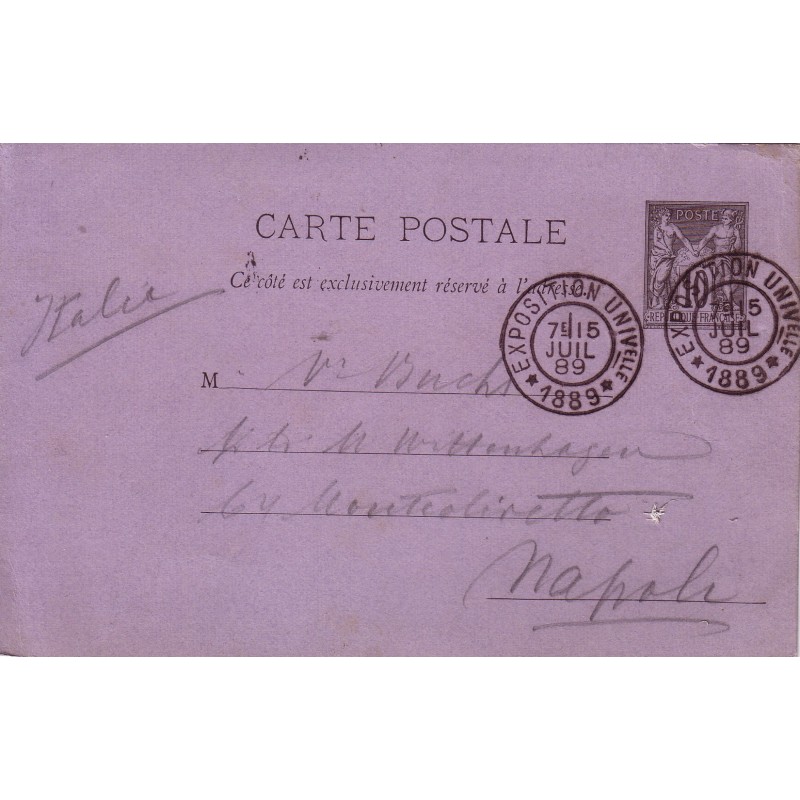 CARTE POSTALE
Ce côté est exclusivement réservé à l'adresse.
POSTE
10
RÉPUBLIQUE FRANÇAISE
EXPOSITION UNIVELLE
7E 15
JUIL
89
*1889*
EXPOSITION UNIVELLE
7E 15
JUIL
89
*1889*
Italie
M
M Wittenhagen
64 Monteoliretto
Napoli